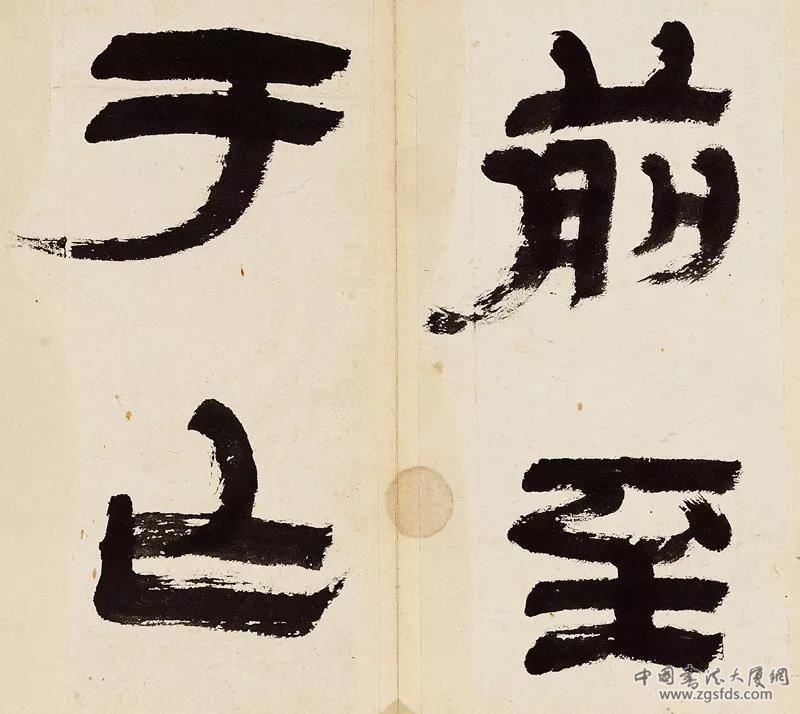 前至
于
中国书法大厦网
www.zgsfds.com